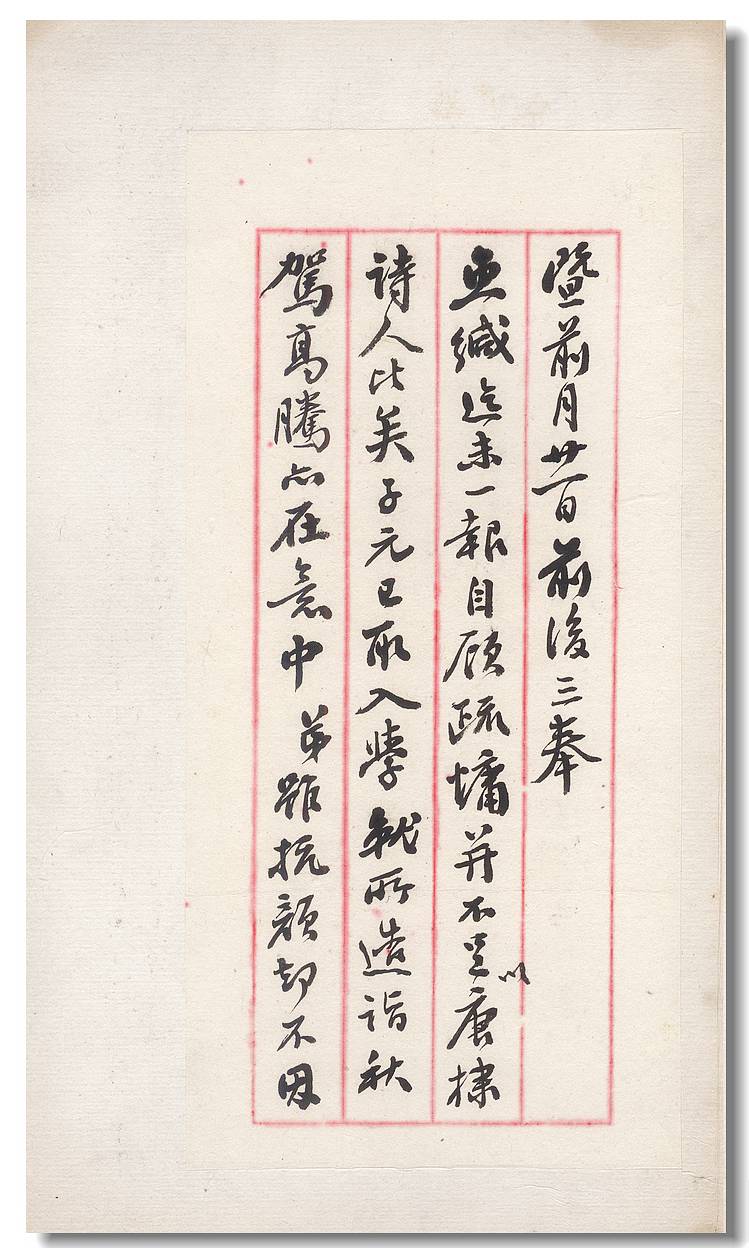 暨前月廿一日前後三奉
魚緘迄未一報自顧疏慵并不足以唐棣
詩人比矣子元已取入學就所造詣秋
駕高騰亦在意中弟雖抗顏却不因